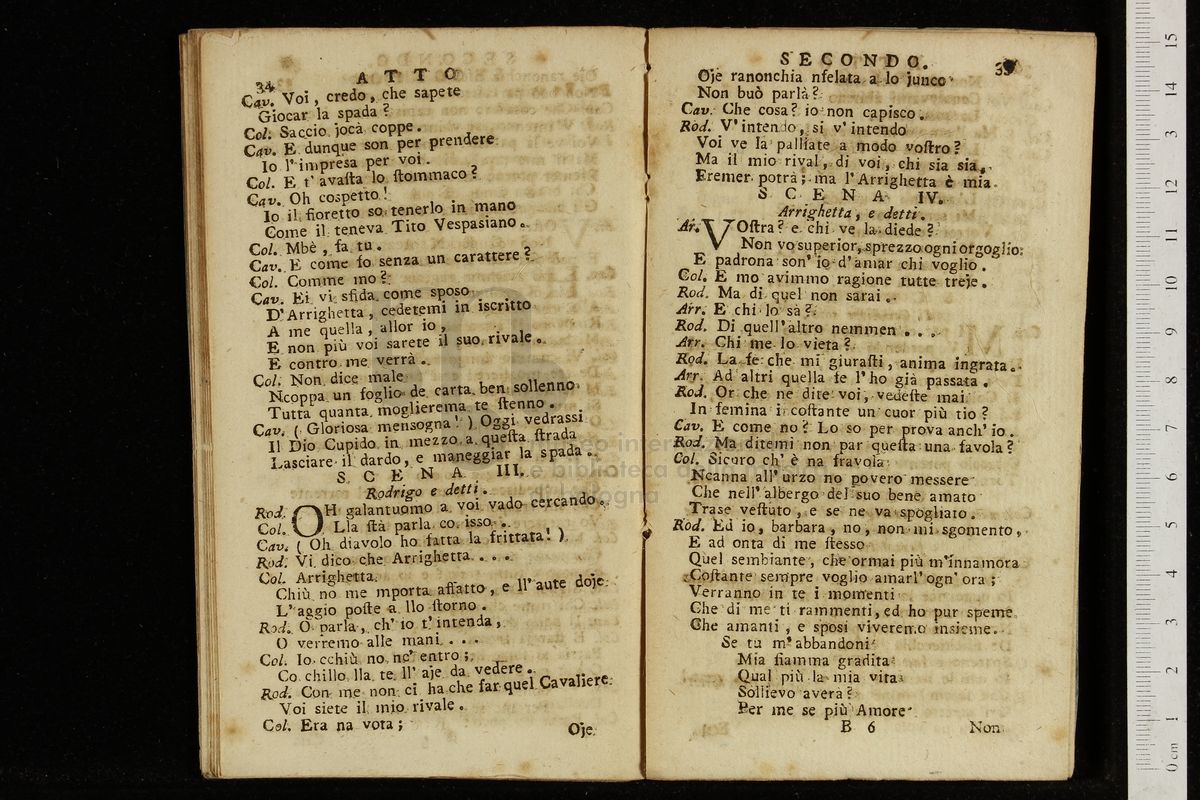 34
ATTO
Cav. Voi, credo, che sapete
Giocar la spada?
Col. Saccio jocà coppe.
Cav. E dunque son per prendere
Io l'impresa per voi.
Col. E t'avaſta lo ſtommaco?
Cav. Oh coſpetto!
Io il fioretto so tenerlo in mano
Come il teneva Tito Vespasiano.
Col. Mbè, fa tu.
Cav. E come fo senza un carattere?
Col. Comme mo?
Cav. Ei vi sfida come sposo
D'Arrighetta, cedetemi in iscritto
A me quella, allor io,
E non più voi sarete il suo rivale.
E contro me verrà.
Col. Non dice male
Ncoppa un foglio de carta ben sollenno
Tutta quanta moglierema te ſtenno.
Cav. (Gloriosa mensogna!) Oggi vedrassi
Il Dio Cupido in mezzo a queſta ſtrada
Lasciare il dardo, e maneggiar la spada.
SCENA III.
Rodrigo e detti.
Rod. OH galantuomo a voi vado cercando.
Col. Lla ſtà parla co isso.
Cav. (Oh diavolo ho fatta la frittata!)
Rod. Vi dico che Arrighetta....
Col. Arrighetta
Chiù no me mporta affatto, e ll'aute doje
L'aggio poſte a llo ſtorno.
Rod. O parla, ch'io t'intenda,
O verremo alle mani....
Col. Io cchiù no nc'entro;
Co chillo lla te ll'aje da vedere.
Rod. Con me non ci ha che far quel Cavaliere
Voi siete il mio rivale.
Col. Era na vota;
Oje
SECONDO.
Oje ranonchia nfelata a lo junco
Non buò parlà?
Cav. Che cosa? io non capisco.
Rod. V'intendo, si v'intendo
Voi ve la palliate a modo voſtro?
Ma il mio rival, di voi, chi sia sia,
Fremer potrà; ma l'Arrighetta è mia.
SCENA IV.
Arrighetta, e detti.
Ar. VOſtra? e chi ve la diede?
Non vo superior, sprezzo ogni orgoglio:
E padrona son'io d'amar chi voglio.
Col. E mo avimmo ragione tutte treje.
Rod. Ma di quel non sarai.
Arr. E chi lo sa?
Rod. Di quell'altro nemmen....
Arr. Chi me lo vieta?
Rod. La fe che mi giuraſti, anima ingrata.
Arr. Ad altri quella fe l'ho già passata.
Rod. Or che ne dite voi, vedeſte mai
In femina i coſtante un cuor più tio?
Cav. E come no? Lo so per prova anch'io.
Rod. Ma ditemi non par queſta una favola?
Col. Sicuro ch'è na fravola
Ncanna all'urzo no povero messere
Che nell'albergo del suo bene amato
Trase veſtuto, e se ne va spogliato.
Rod. Ed io, barbara, no, non mi sgomento,
E ad onta di me ſtesso
Quel sembiante, che ormai più m'innamora
Coſtante sempre voglio amarl'ogn'ora;
Verranno in te i momenti
Che di me ti rammenti, ed ho pur speme
Che amanti, e sposi viveremo insieme.
Se tu m'abbandoni
Mia fiamma gradita
Qual più la mia vita
Sollievo averà?
Per me se più Amore
B 6
Non